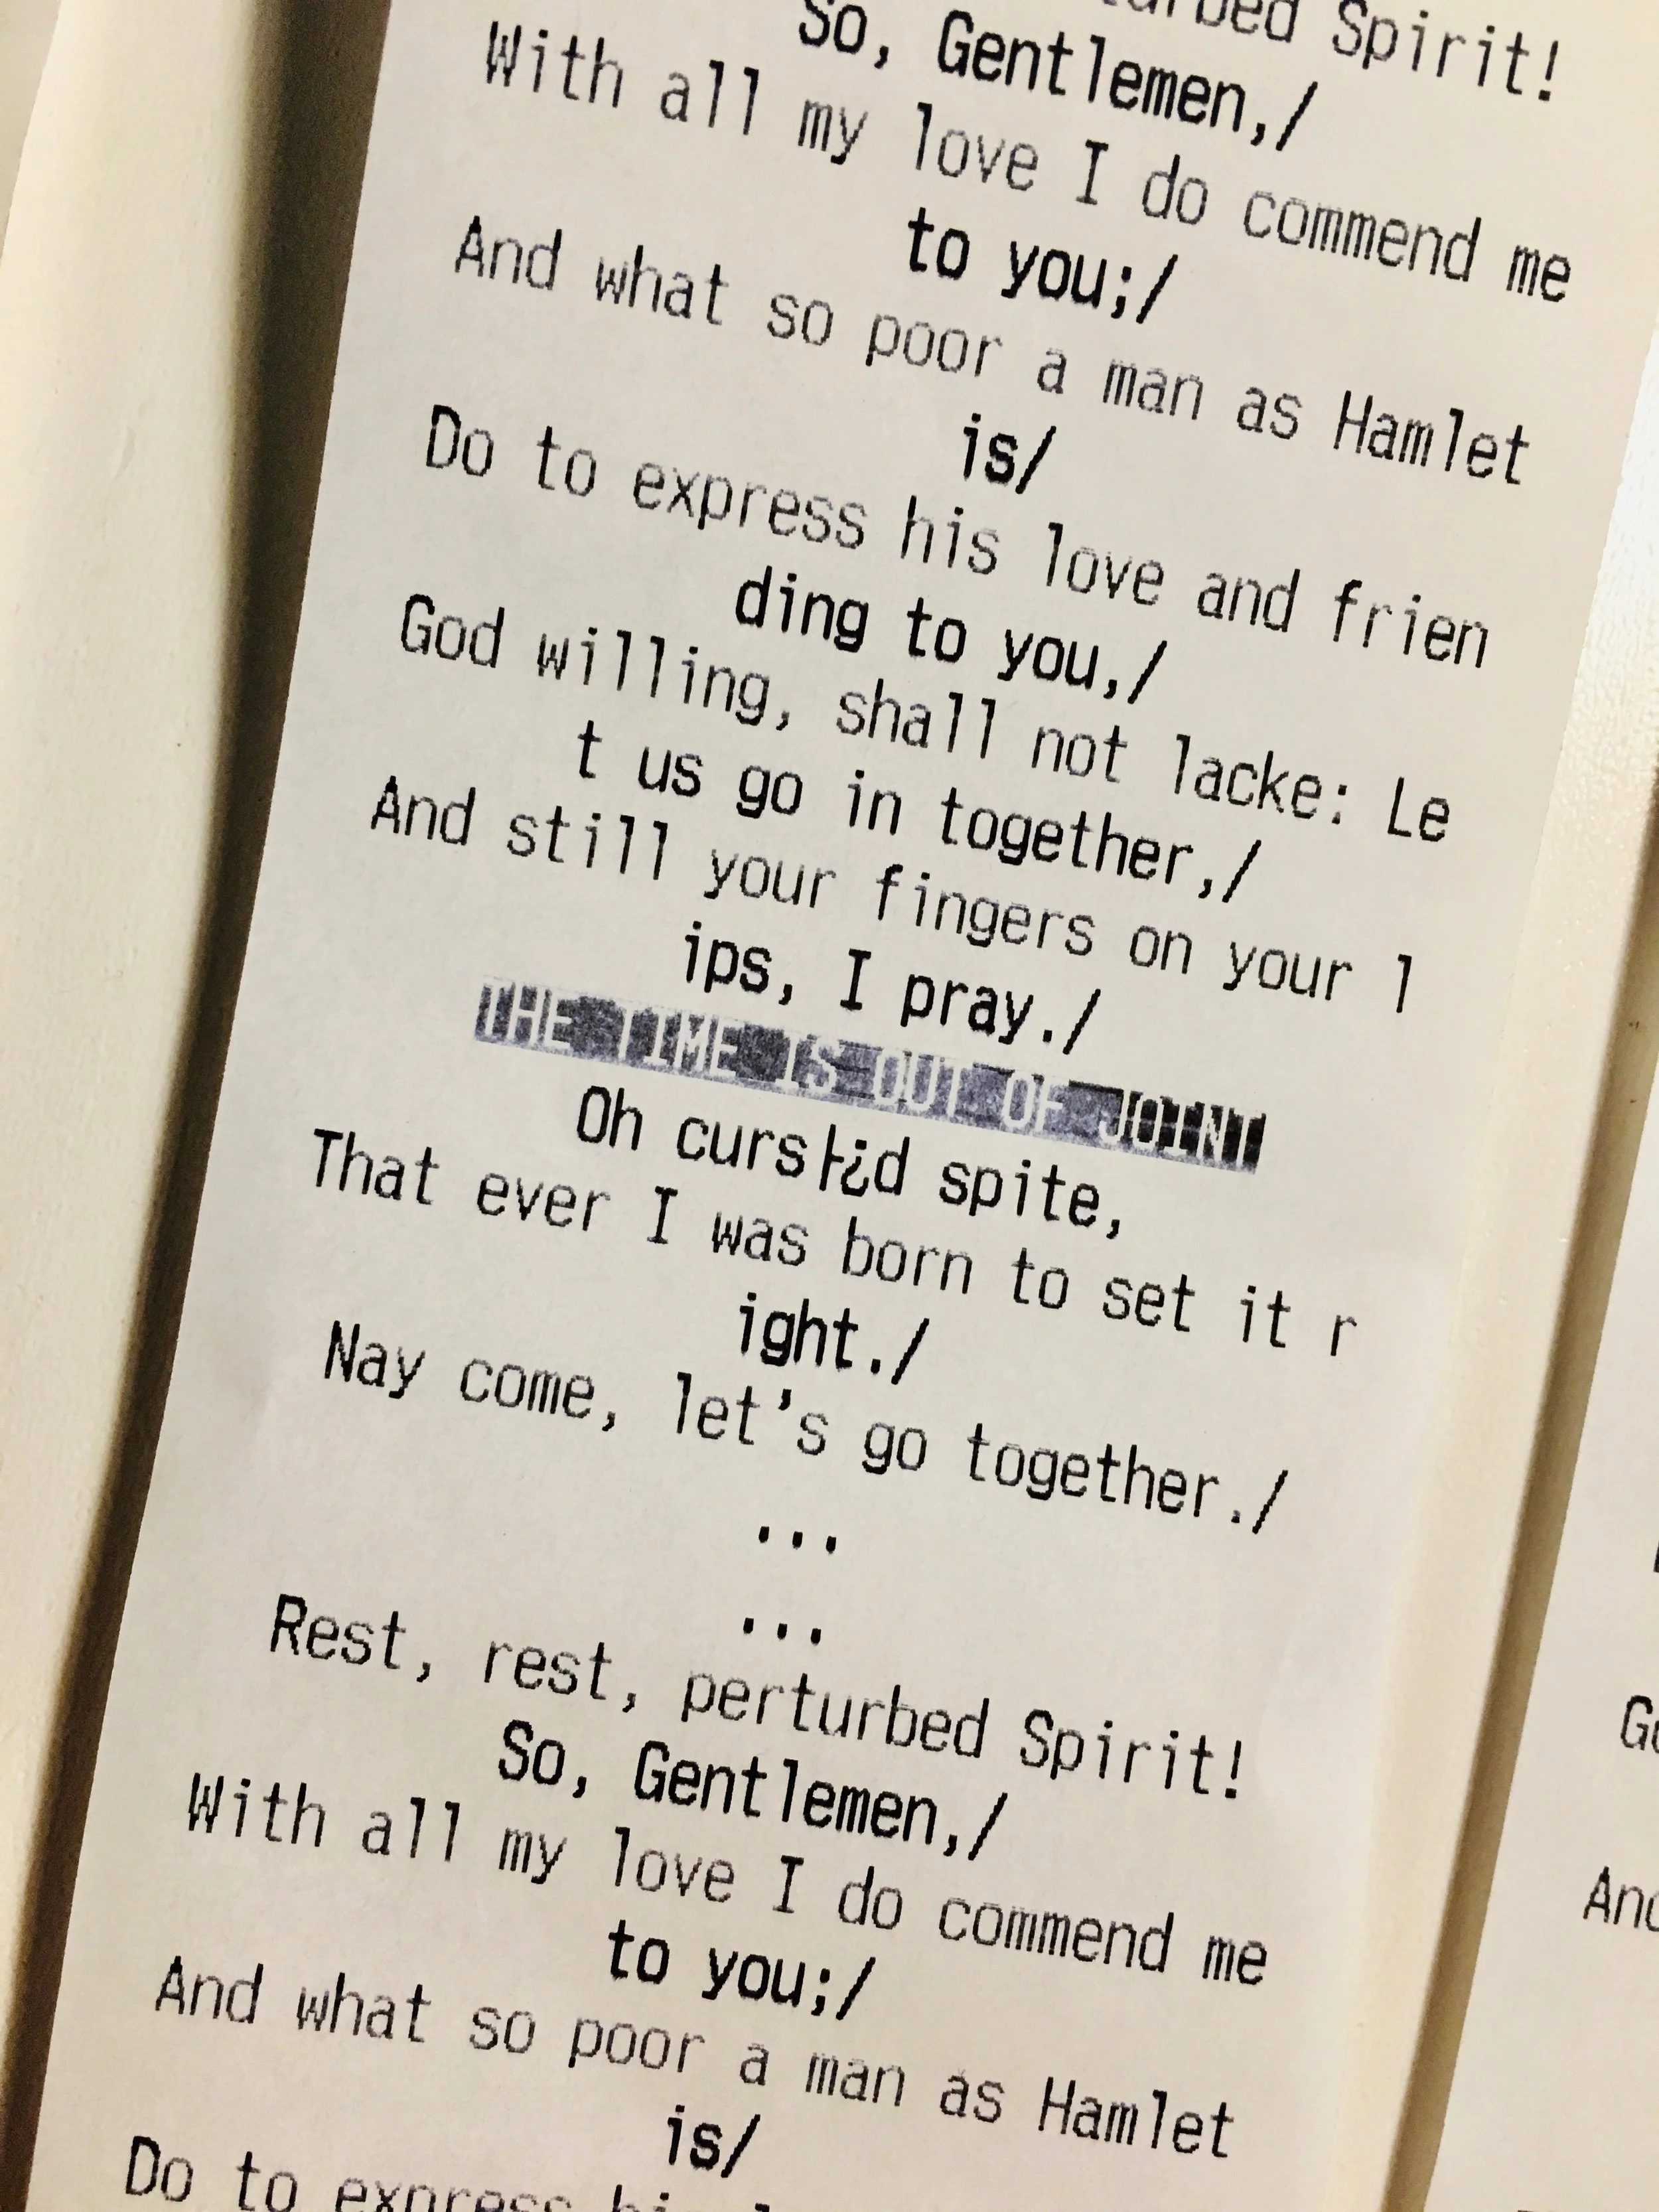 Spirit!
So, Gentlemen,/
With all my love I do commend me
to you;/
And what so poor a man as Hamlet
is/
Do to express his love and frien
ding to you,/
God willing, shall not lacke: Le
t us go in together,/
And still your fingers on your l
ips, I pray./
THE TIME IS OUT OF JOINT
Oh curs├¿d spite,
That ever I was born to set it r
ight./
Nay come, let's go together./
...
...
Rest, rest, perturbed Spirit!
So, Gentlemen,/
With all my love I do commend me
to you;/
And what so poor a man as Hamlet
is/
Do to express